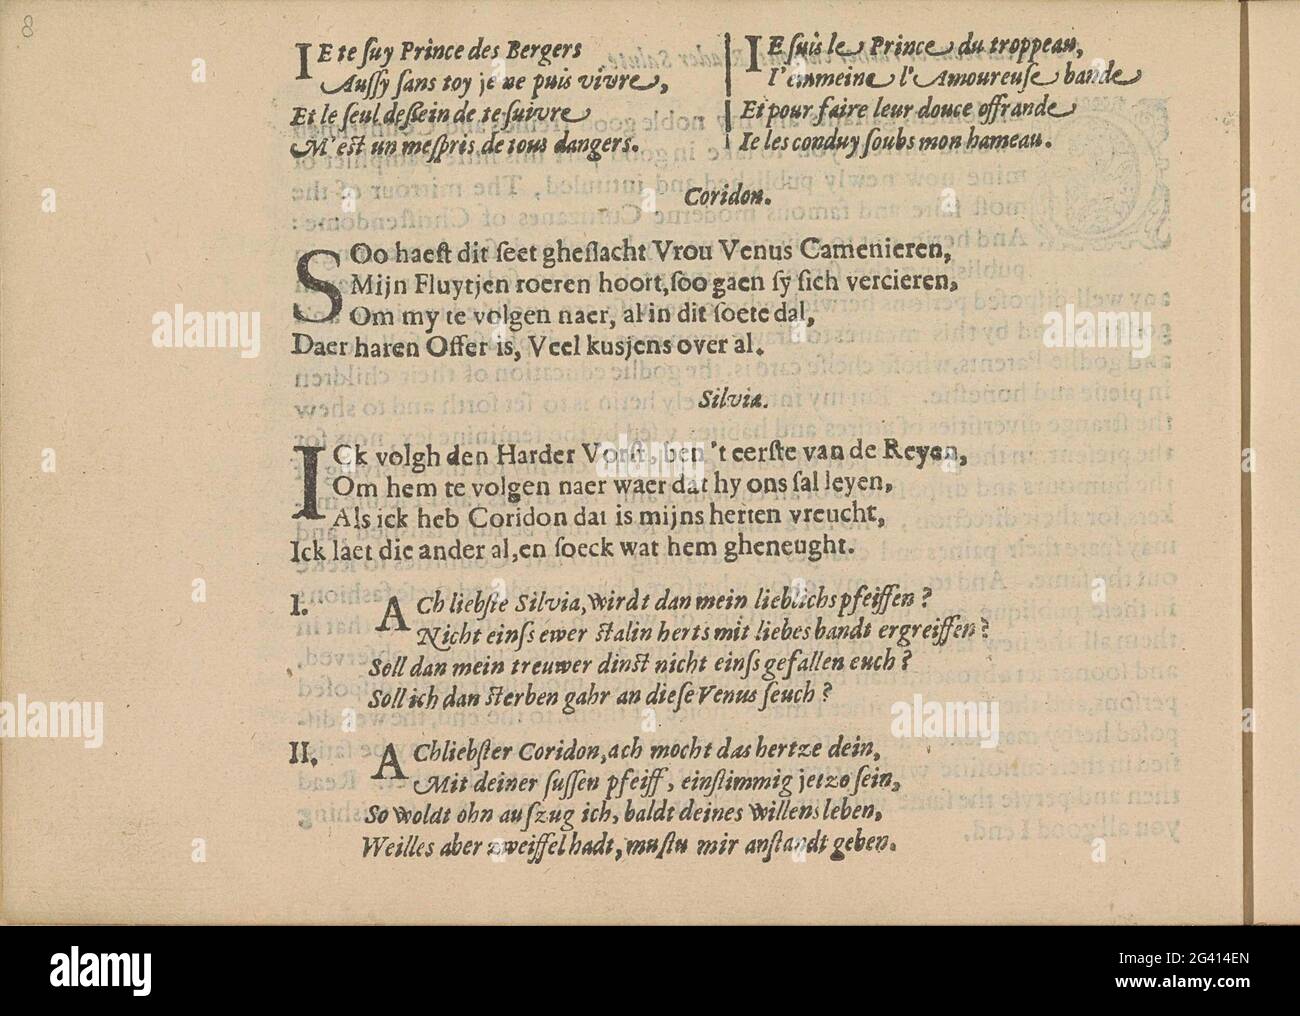 8
IE te suy Prince des Bergers
Aussy sans toy je ne puis vivre,
Et le seul dessein de te suivre
M'est un mespris de tous dangers.
IE suis le Prince du troppeau,
I'emmeine l'Amoureuse bande
Et pour faire leur douce offrande
Ie les conduy soubs mon hameau.
Coridon.
SOo haest dit seet gheslacht Vrou Venus Camenieren,
Mijn Fluytjen roeren hoort, soo gaen sy sich vercieren,
Om my te volgen naer, al in dit soete dal,
Daer haren Offer is, Veel kusjens over al.
Silvia.
ICk volgh den Harder Vorst, ben 't eerste van de Reyen,
Om hem te volgen naer waer dat hy ons sal leyen,
Als ick heb Coridon dat is mijns herten vreucht,
Ick laet die ander al, en soeck wat hem gheneught.
I. ACh liebste Silvia, wirdt dan mein lieblichs pfeiffen?
Nicht einss ewer stalin herts mit liebes bandt ergreiffen?
Soll dan mein treuwer dinst nicht einss gefallen euch?
Soll ich dan sterben gahr an diese Venus seuch?
II. AChliebster Coridon, ach mocht das hertze dein,
Mit deiner sussen pfeiff, einstimmig jetzo sein,
So woldt ohn auszug ich, baldt deines willens leben,
Weilles aber zweiffel hadt, mustu mir anstandt geben.
alamy
Image ID: 2G414EN
www.alamy.com